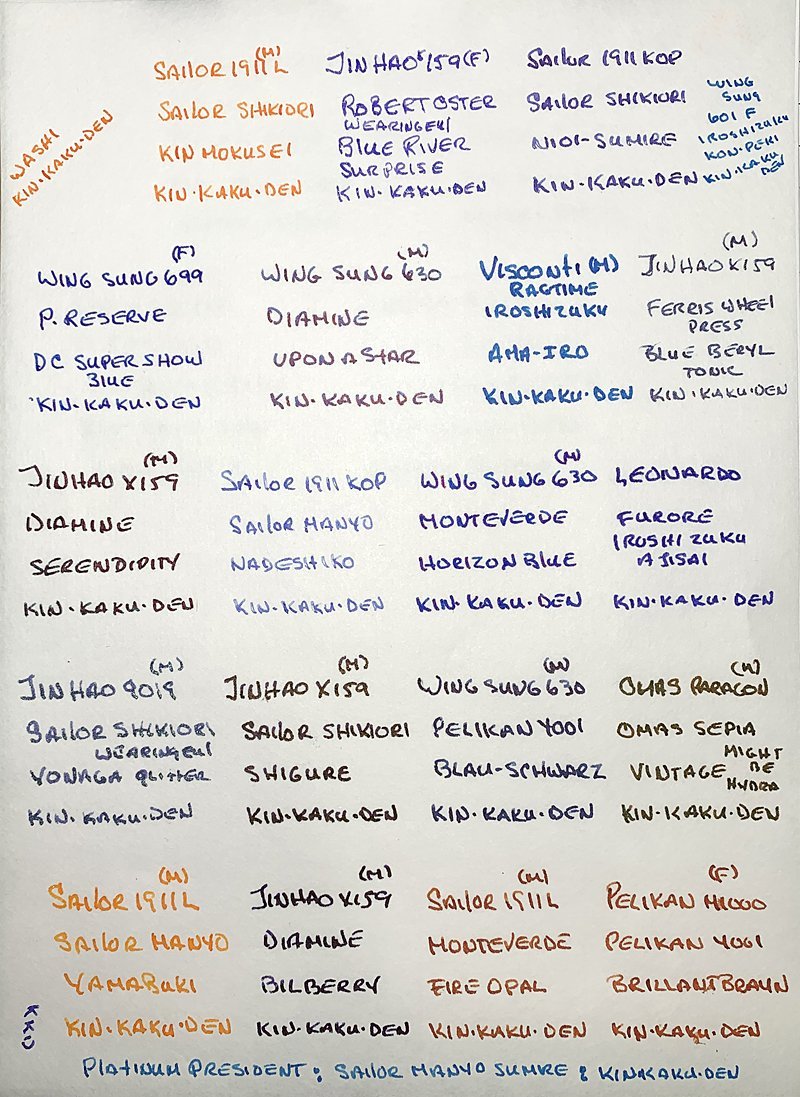 WASHI
KIN·KAKU·DEN
(M)
SAILOR 1911 L
SAILOR SHIKIORI
KIN MOKUSEI
KIN·KAKU·DEN
JINHAO X159 (F)
ROBERT OSTER
WEARINGEUL
BLUE RIVER
SURPRISE
KIN·KAKU·DEN
SAILOR 1911 KOP
SAILOR SHIKIORI
NIOI-SUMIRE
KIN·KAKU·DEN
WING
SUNG
601 F
IROSHIZUKU
KON-PEKI
KIN·KAKU
DEN
(F)
WING SUNG 699
P. RESERVE
DC SUPER SHOW
BLUE
KIN·KAKU·DEN
(M)
WING SUNG 630
DIAMINE
UPON A STAR
KIN·KAKU·DEN
VISCONTI (M)
RAGTIME
IROSHIZUKU
AMA-IRO
KIN·KAKU·DEN
(M)
JINHAO X159
FERRIS WHEEL
PRESS
BLUE BERYL
TONIC
KIN·KAKU·DEN
(M)
JINHAO X159
DIAMINE
SERENDIPITY
KIN·KAKU·DEN
SAILOR 1911 KOP
SAILOR MANYO
NADESHIKO
KIN·KAKU·DEN
(M)
WING SUNG 630
MONTEVERDE
HORIZON BLUE
KIN·KAKU·DEN
LEONARDO
FURORE
IROSHIZUKU
AJISAI
KIN·KAKU·DEN
(M)
JINHAO 9019
SAILOR SHIKIORI
WEARINGEUL
YONAGA GLITTER
KIN·KAKU·DEN
(M)
JINHAO X159
SAILOR SHIKIORI
SHIGURE
KIN·KAKU·DEN
(M)
WING SUNG 630
PELIKAN 4001
BLAU-SCHWARZ
KIN·KAKU·DEN
(M)
OMAS PARAGON
OMAS SEPIA
VINTAGE MIGHT
BE
HYDRA
KIN·KAKU·DEN
(M)
SAILOR 1911 L
SAILOR MANYO
YAMABUKI
KIN·KAKU·DEN
(M)
JINHAO X159
DIAMINE
BILBERRY
KIN·KAKU·DEN
(M)
SAILOR 1911 L
MONTEVERDE
FIRE OPAL
KIN·KAKU·DEN
(F)
PELIKAN M1000
PELIKAN 4001
BRILLANTBRAUN
KIN·KAKU·DEN
KKD
PLATINUM PRESIDENT : SAILOR MANYO SUMRE & KINKAKU·DEN